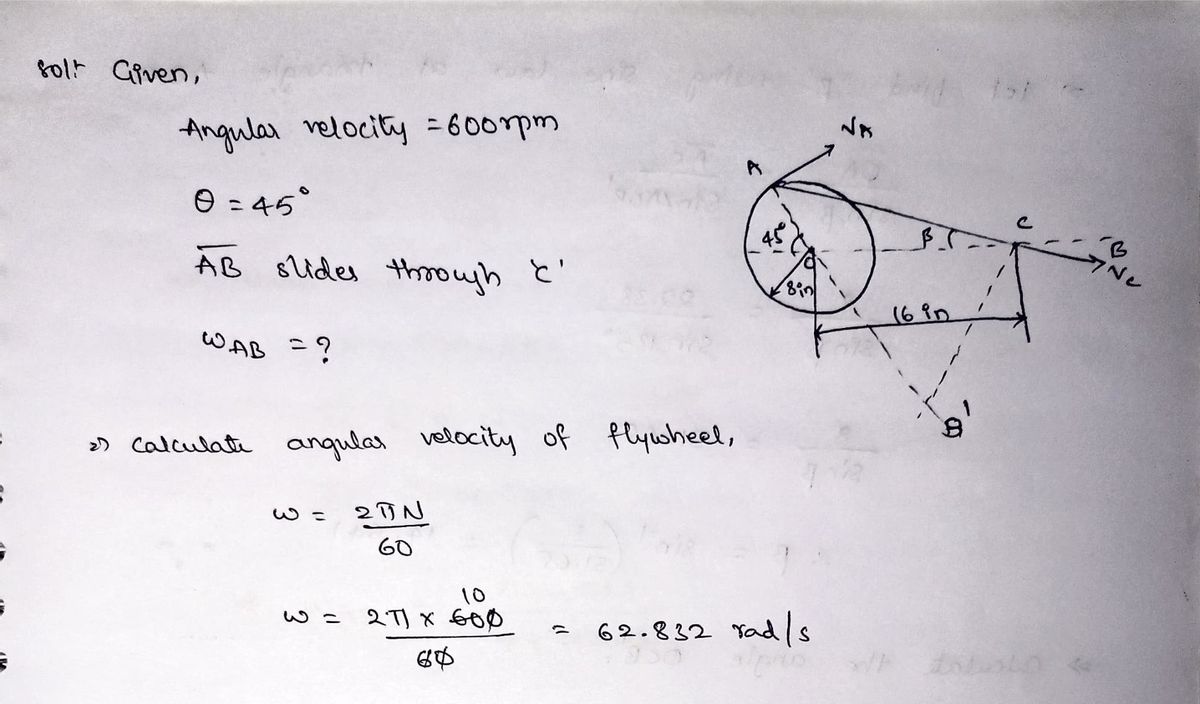 Sol:- Given,
Angular velocity = 600rpm
θ = 45°
A̅B̅ slides through 'c'
ωAB = ?
VA
A
45°
O
8in
β
C
B
Vc
16 in
B'
2) Calculate angular velocity of flywheel,
ω = 2πN
60
10
ω = 2π x 600 = 62.832 rad/s
60